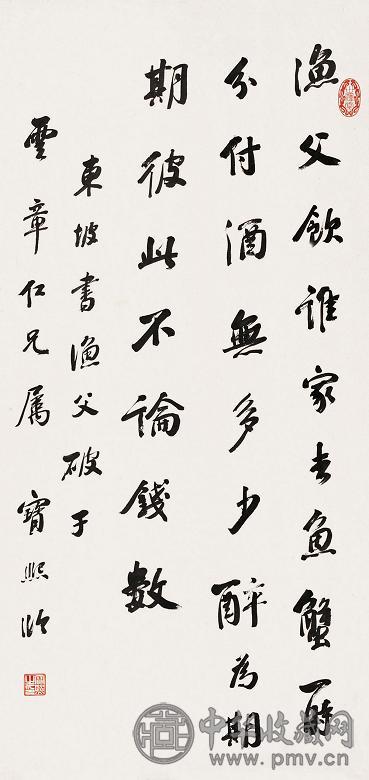 漁父飲誰家去魚蟹一時
分付酒無多少醉為期
期彼此不論錢數
東坡書漁父破子
雲章仁兄屬 寶熙臨
中华收藏网
www.pmv.cn